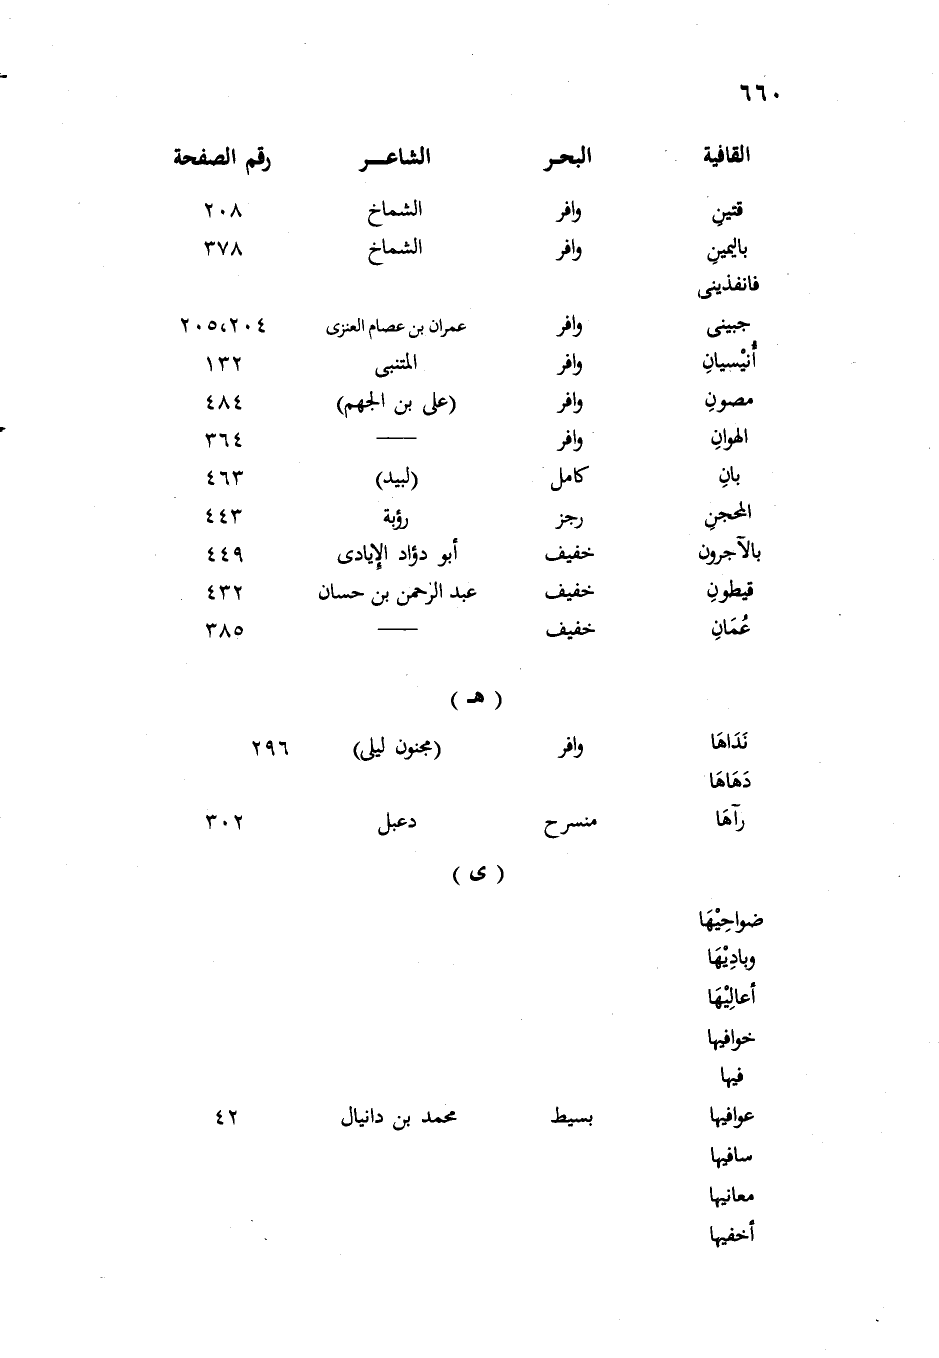 ٦٦٠
القافية البحر الشاعر رقم الصفحة
قتينِ وافر الشماخ ٢٠٨
باليمينِ وافر الشماخ ٣٧٨
فانفذينى
جبينى وافر عمران بن عصام العنزى ٢٠٥،٢٠٤
أُنَيْسيانِ وافر المتنبى ١٣٢
مصونِ وافر (على بن الجهم) ٤٨٤
الهوانِ وافر —— ٣٦٤
بانِ كامل (لبيد) ٤٦٣
المحجنِ رجز رؤبة ٤٤٣
بالآجرون خفيف أبو دؤاد الإيادى ٤٤٩
قيطونِ خفيف عبد الرحمن بن حسان ٤٣٢
عُمَانِ خفيف —— ٣٨٥
( هـ )
نَدَاهَا وافر (مجنون ليلى) ٢٩٦
دَهَاهَا
رآهَا منسرح دعبل ٣٠٢
( ى )
ضواحِيْهَا
وبادِيْهَا
أعالِيْهَا
خوافيها
فيها
عوافيها بسيط محمد بن دانيال ٤٢
سافيها
معانيها
أخفيها